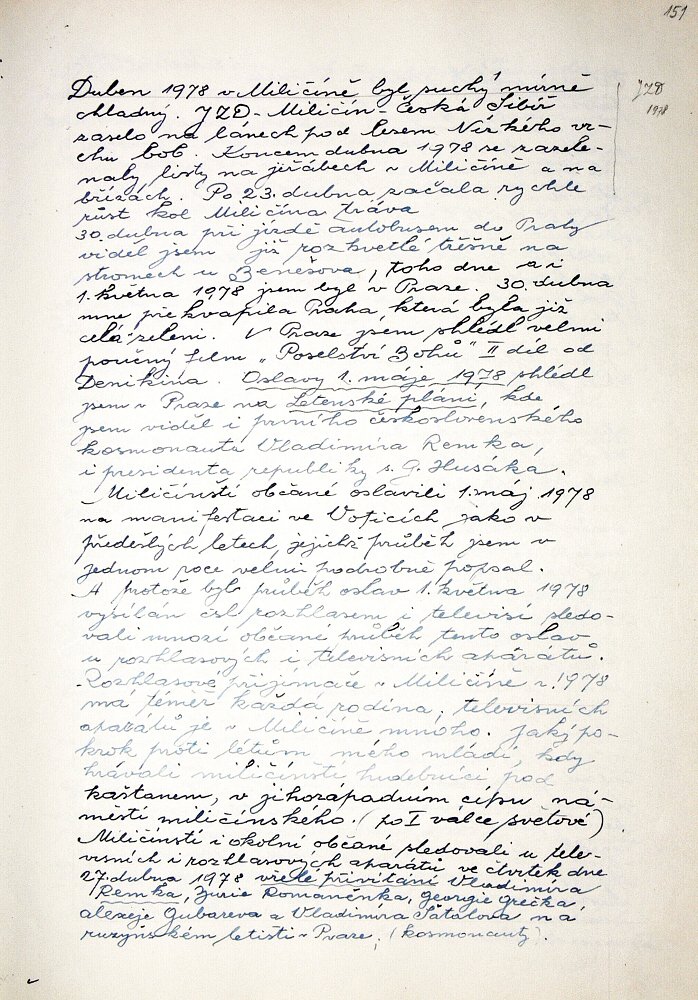 151
Duben 1978 v Miličíně byl suchý mírně
chladný. JZD - Miličín - Česká Sibiř
zaselo na lánech pod lesem Nízkého vr-
chu bob. Koncem dubna 1978 se zazele-
naly listy na jeřábech v Miličíně a na
břízách. Po 23. dubna začala rychle
růst kol Miličína tráva
30. dubna při jízdě autobusem do Prahy
viděl jsem již rozkvetlé třěšně na
stromech u Benešova, toho dne a i
1. května 1978 jsem byl v Praze. 30. dubna
mne překvapila Praha, která byla již
celá zeleni. V Praze jsem shlédl velmi
poučný film „Poselství Bohů" II díl od
Denikina. Oslavy 1. máje 1978 shlédl
jsem v Praze na Letenské pláni, kde
jsem viděl i prvního československého
kosmonauta Vladimíra Remka,
i presidenta republiky s. G. Husáka.
Miličínští občané oslavili 1. máj 1978
na manifestaci ve Voticích jako v
předešlých letech, jejichž průběh jsem v
jednom roce velmi podrobně popsal.
A protože byl průběh oslav 1. května 1978
vysílán čsl. rozhlasem i televisí sledo-
vali mnozí občané průběh tento oslav
u rozhlasových i televisních aparátů.
Rozhlasové přijimače v Miličíně r. 1978
má téměř každá rodina, televisních
aparátů je v Miličíně mnoho. Jaký po-
krok proti létům mého mládí, kdy
hrávali miličínští hudebníci pod
kaštanem, v jihozápadním cípu ná-
městí miličínského. (po I válce světové)
Miličínští i okolní občané sledovali u tele-
visních i rozhlasových aparátů ve čtvrtek dne
27. dubna 1978 vřelé přivítání Vladimíra
Remka, Jurie Romaněnka, Georgie Grečka,
alexeje Gubareva a Vladimíra Šatalova na
ruzyňském letišti v Praze. (kosmonauty).
JZD
1978